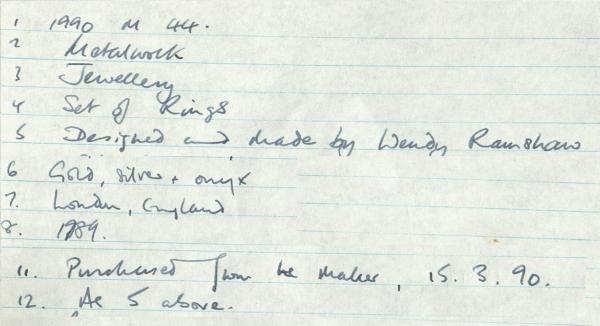 1 1990 M 44.
2 Metalwork
3 Jewellery
4 Set of Rings
5 Designed and made by Wendy Ramshaw
6 Gold, silver + onyx
7. London, England
8. 1989.
11. Purchased from the maker, 15.3.90.
12. As 5 above.